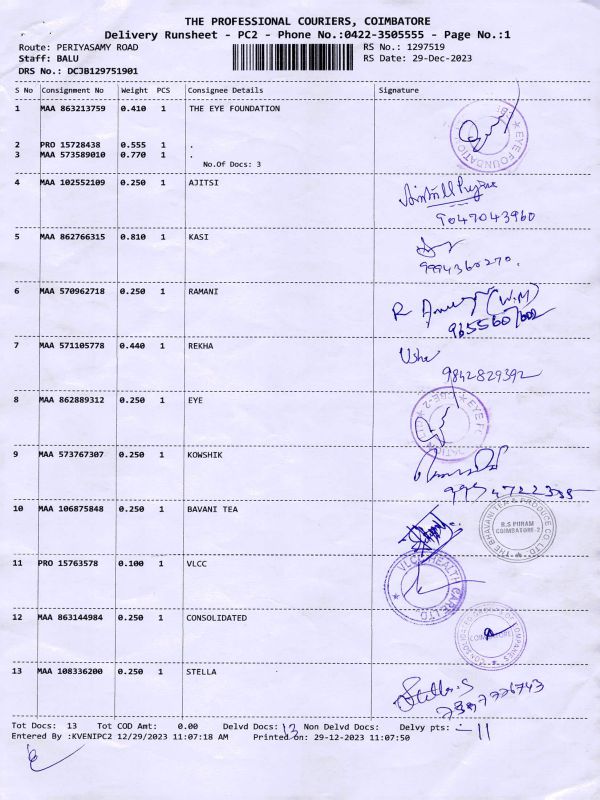 THE PROFESSIONAL COURIERS, COIMBATORE
Delivery Runsheet - PC2 - Phone No.:0422-3505555 - Page No.:1
Route: PERIYASAMY ROAD
RS No.: 1297519
Staff: BALU
RS Date: 29-Dec-2023
DRS No.: DCJB129751901
S No Consignment No Weight PCS Consignee Details Signature
1 MAA 863213759 0.410 1 THE EYE FOUNDATION
2 PRO 15728438 0.555 1 .
3 MAA 573589010 0.770 1 .
No.Of Docs: 3
4 MAA 102552109 0.250 1 AJITSI
9047043960
5 MAA 862766315 0.810 1 KASI
9994360270.
6 MAA 570962718 0.250 1 RAMANI
R (W.M)
7 MAA 571105778 0.440 1 REKHA
Usha
9842829392
8 MAA 862889312 0.250 1 EYE
9 MAA 573767307 0.250 1 KOWSHIK
10 MAA 106875848 0.250 1 BAVANI TEA
THE BHAVANI TEA & PRODUCE CO. LTD.
R.S PURAM
COIMBATORE-2
11 PRO 15763578 0.100 1 VLCC
VLCC HEALTH CARE LTD
12 MAA 863144984 0.250 1 CONSOLIDATED
COIMBATORE
13 MAA 108336200 0.250 1 STELLA
Stella.S
Tot Docs: 13 Tot COD Amt: 0.00 Delvd Docs: 13 Non Delvd Docs: Delvy pts: 11
Entered By :KVENIPC2 12/29/2023 11:07:18 AM Printed on: 29-12-2023 11:07:50